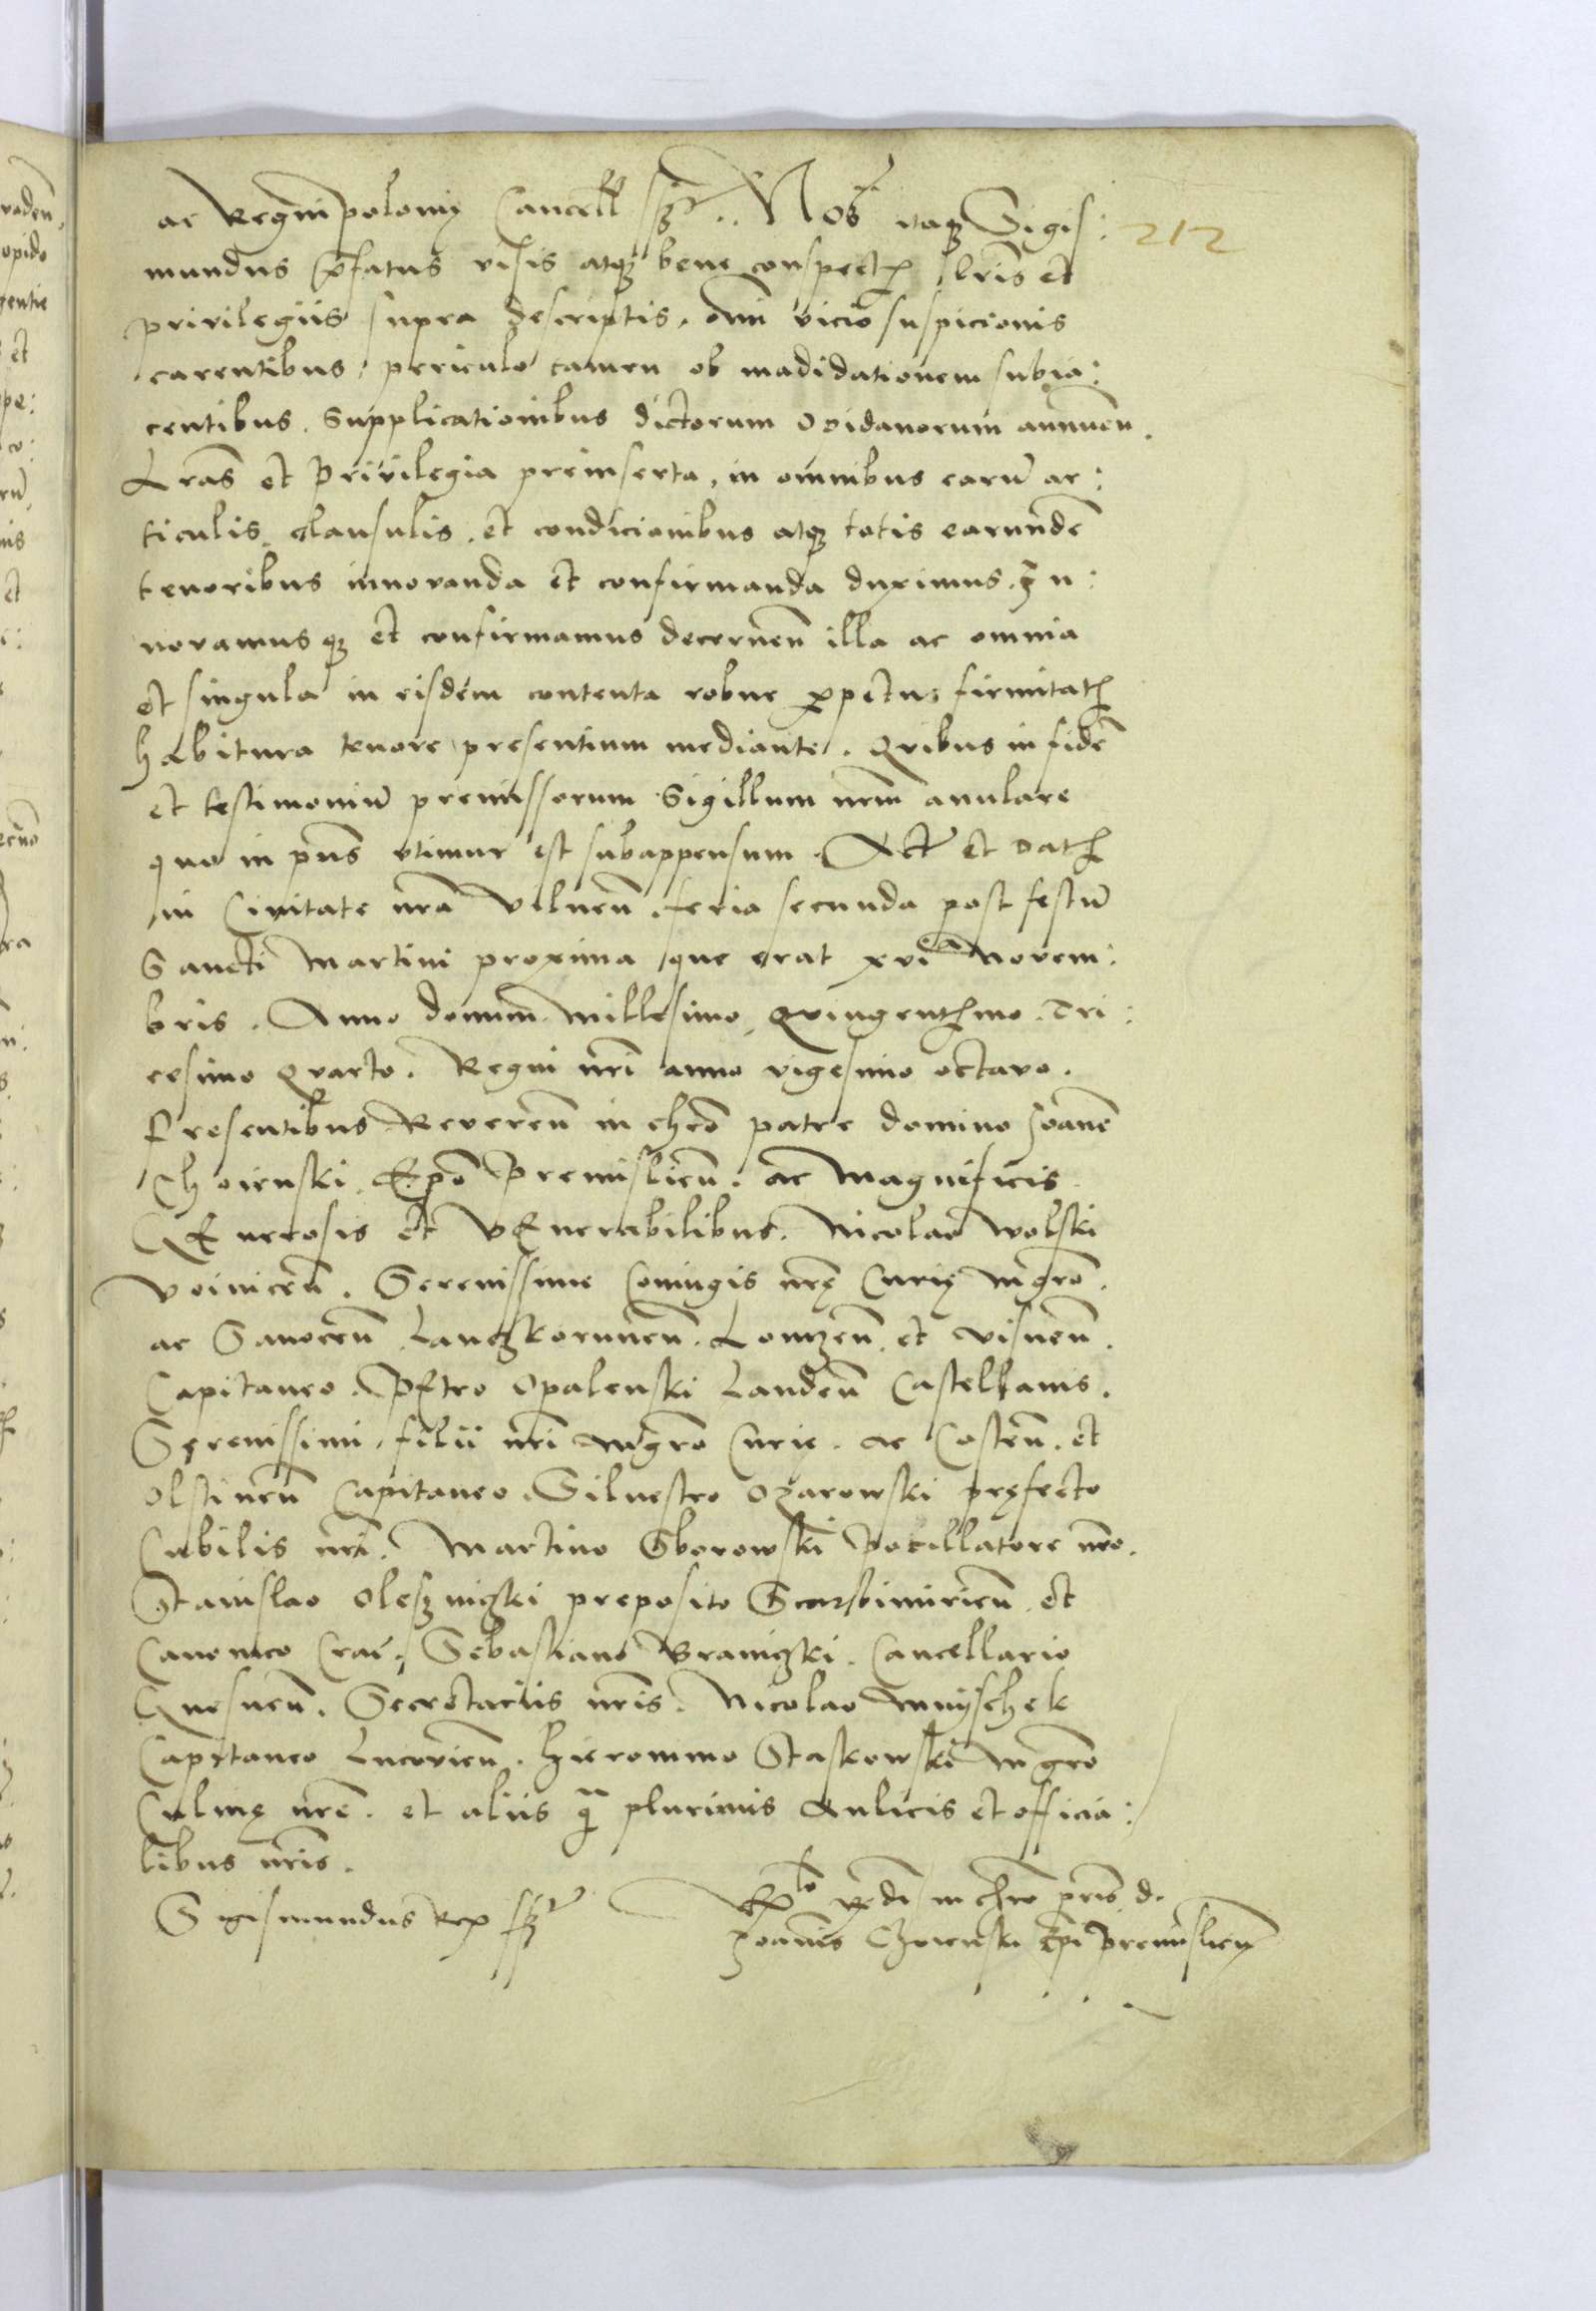 ac Regni polonię Cancell sszt. Nos itaqȝ Sigis: 212
mundus p̃fatus visis atqȝ bene conspectꝭ lr̃is et
privilegiis supra descriptis, om̃i vicio suspicionis
carentibus, periculo tamen ob madidationem subia:
centibus. Supplicationibus dictorum Opidanorum annueñ.
Lr̃as et Privilegia preinserta, in omnibus earũ ar:
ticulis, clausulis, et condicionibus atqȝ totis earundẽ
tenoribus innovanda et confirmanda duximus. In:
novamusqȝ et confirmamus decerneñ illa ac omnia
et singula in eisdem contenta robur ꝑpetuę firmitatꝭ
habitura tenore presentium mediante. Quibus in fidẽ
et testimoniũ premissorum Sigillum nr̃m anulare
quo in pñs utimur est subappensum. Actũ et Datꝭ
in Civitate nr̃a Vilneñ. feria secunda post festũ
Sancti Martini proxima que erat xvi a Novem:
bris. Anno domini Millesimo Quingentꝭmo. Tri:
cesimo Quarto. Regni nr̃i anno vigesimo octavo.
Presentibus Revereñ in chr̃o patre domino Joanñe
Choienski Ep̃o Premislieñ. ac Magnificis
GEnerosis et VEnerabilibus. Nicolao Wolski
Voiniceñ. Serenissime Coniugis nr̃ę Curię mgr̃o.
ac Sanoceñ Lanczkoruneñ. Lomzeñ. et Visneñ.
Capitaneo. PEtro Opalenski Landeñ Castellanis.
Serenissimi filii nr̃i mgr̃o Curię. ac Costeñ. et
Olstineñ Capitaneo. Silvestro Ozarowski pręfecto
Cubilis nr̃i. Martino Sborowski Pocillatore nr̃o.
Stanislao Oleszniczki preposito Scarbimirieñ. et
Canonico Crac̃. Sebastiano Braniczki. Cancellario
Gnesneñ. Secretariis nr̃is. Nicolao Mnyschek
Capitaneo Lucovieñ. Hieronimo Staskowski mgr̃o
Culinę nr̃ę. et aliis q̃ plurimis Aulicis et officia:
libus nr̃is.
Sigismundus Rex sszt
Rlo Rdi in chr̃o pris d.
Joannis Choienski Ep̃i Premislieñ